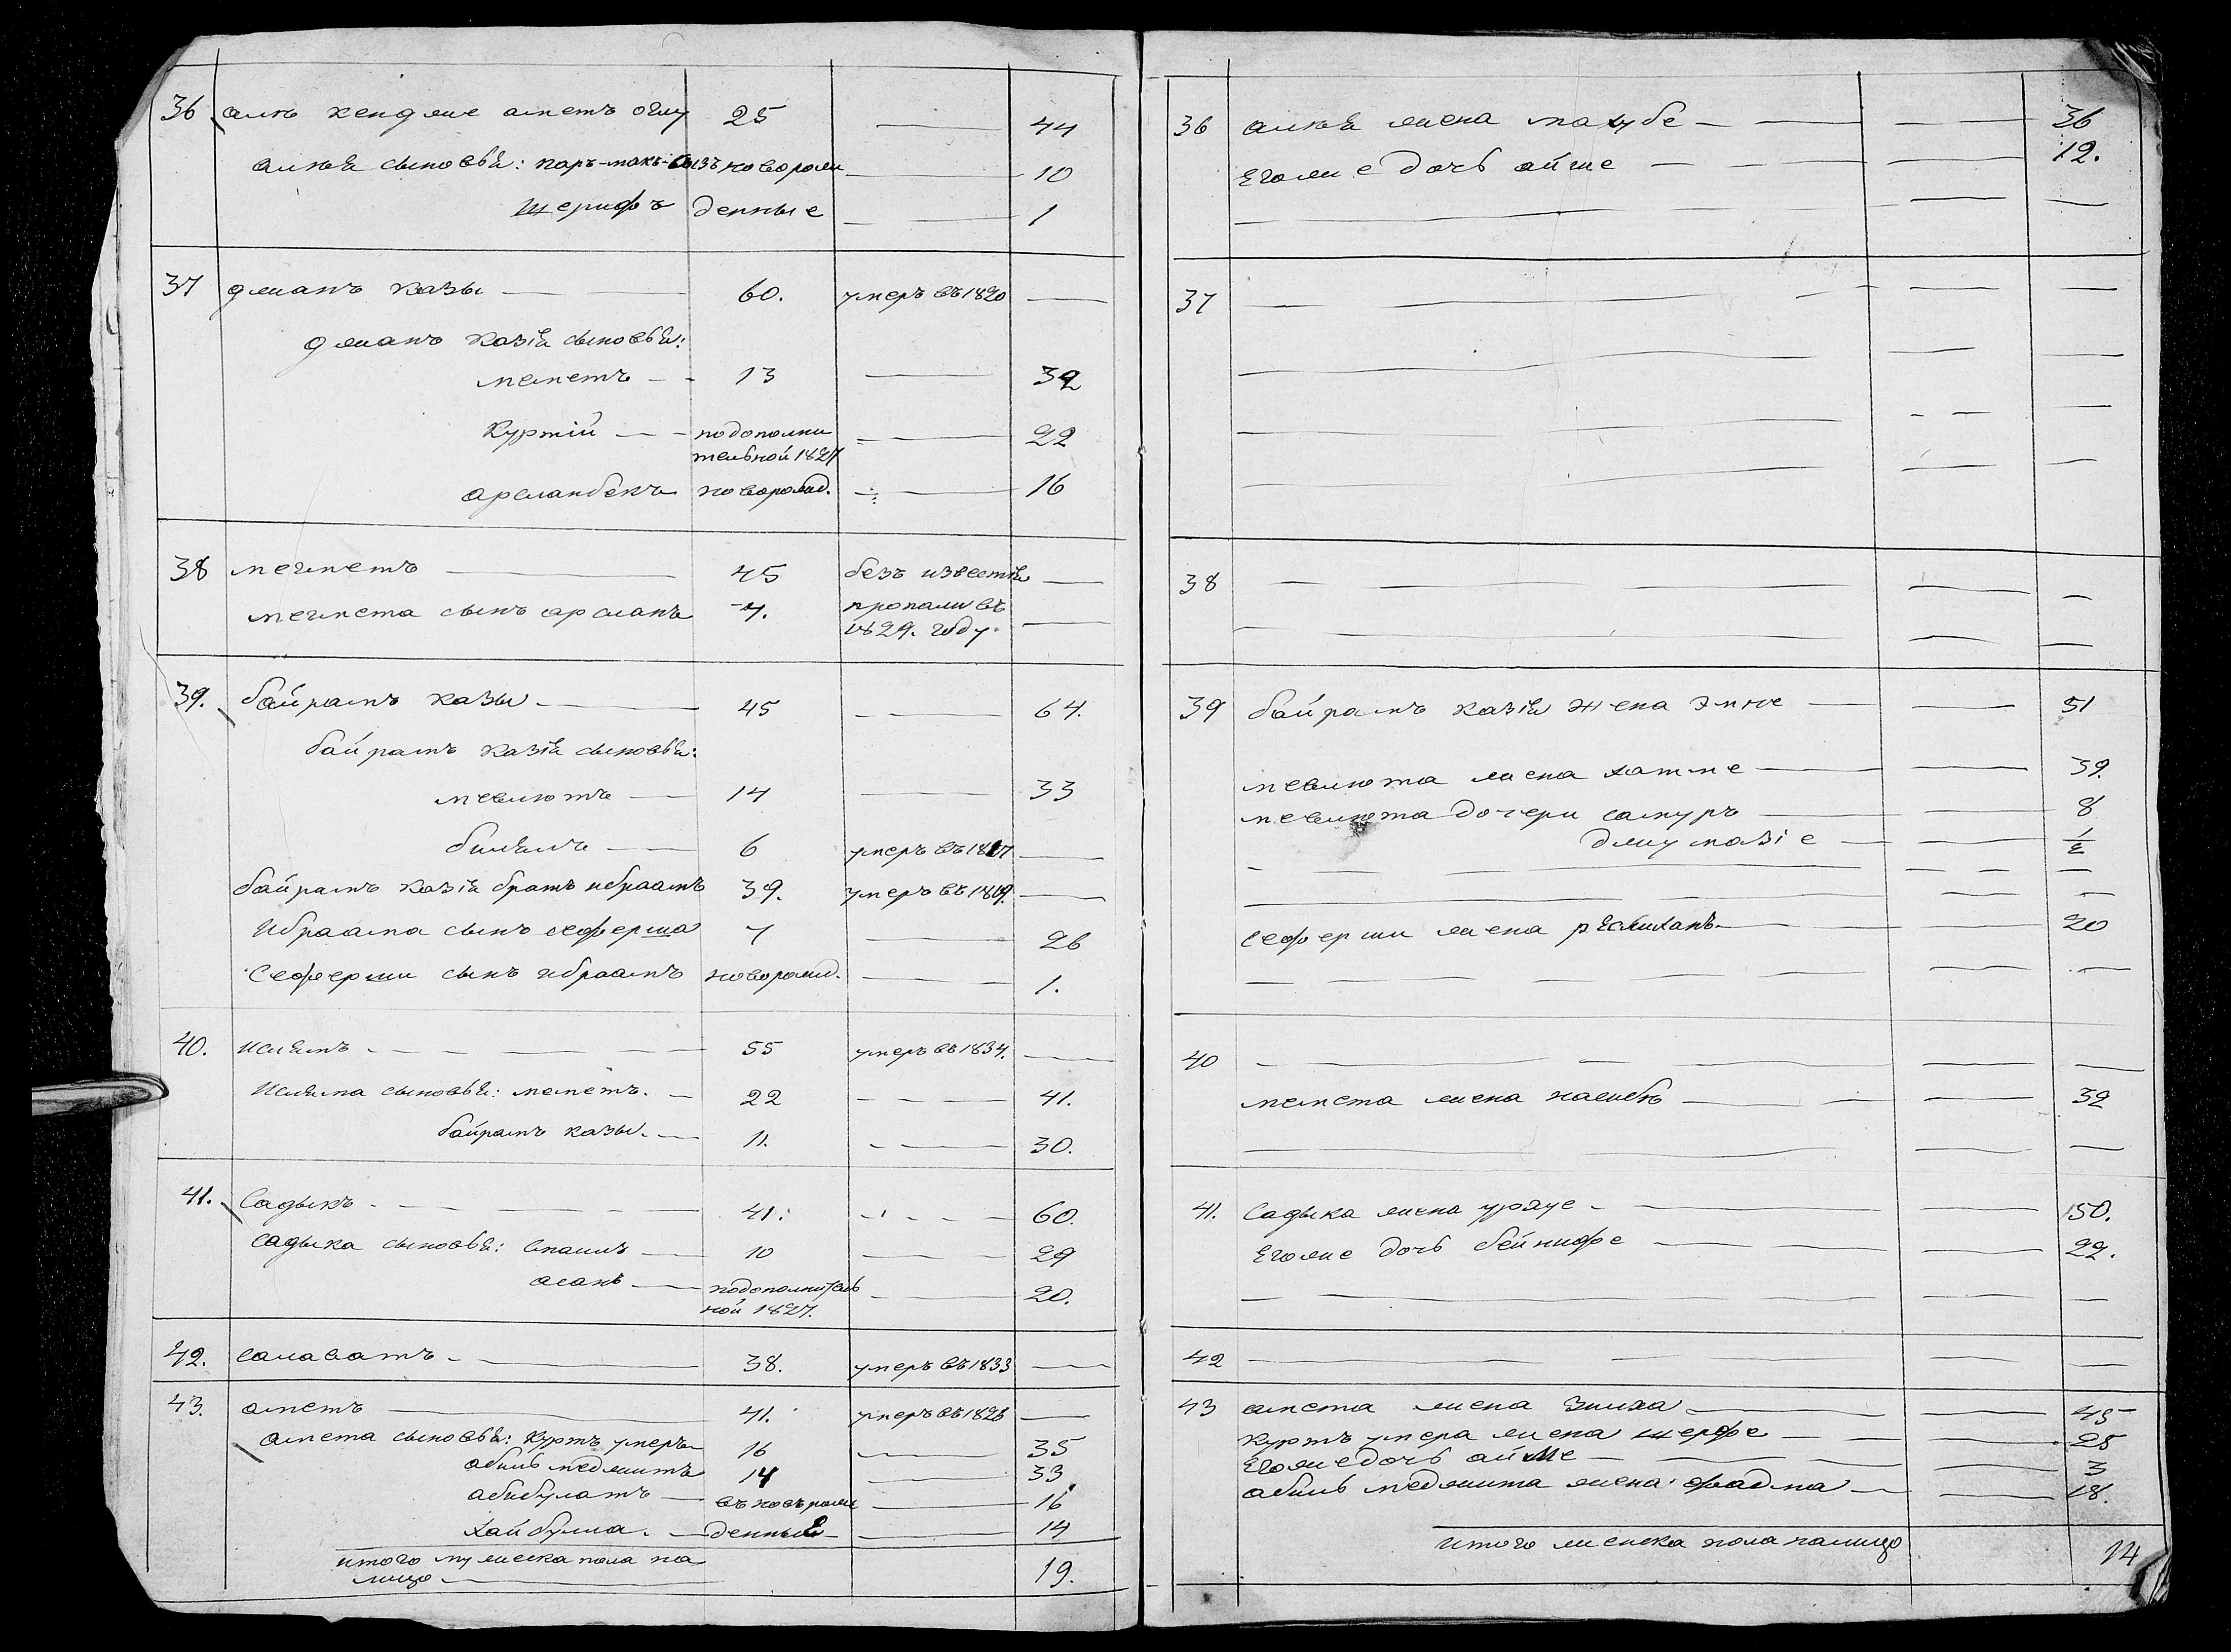 36 алѣ кенджеаметъ оглу 25 — 44
алѣя сыновья: паръ-макъ-сызъ новорож — 10
шерифъ денные — 1
37 джанъ казы — 60. умеръ въ 1820 —
джанъ казія сыновья:
меметъ — 13 — 32
Куртій — подополни — 22
тельной 1827
арсланбекъ новорожд. — 16
38 мегметъ — 45 безъ известія —
мегмета сынъ арсланъ 7. пропали въ —
1829. году.
39. байрамъ казы — 45 — 64.
байрамъ казія сыновья:
мевлютъ — 14 — 33
билялъ — 6 умеръ въ 1827 —
байрамъ казія братъ ибраамъ 39. умеръ въ 1819. —
Ибраама сынъ сеферша 7 — 26
Сеферши сынъ ибраамъ новорожд. — 1.
40. Ислямъ — 55 умеръ въ 1834. —
Исляма сыновья: меметъ. — 22 — 41.
байрамъ казы. — 11. — 30.
41. Садыкъ — 41. — 60.
садыка сыновья: — 10 — 29
асанъ — подополнитель — 20.
ной 1827.
42. салаватъ — 38. умеръ въ 1833 —
43. аметъ — 41. умеръ въ 1826 —
амета сыновья: Куртъ умеръ 16 — 35
абиль меджитъ 14 — 33
абибулатъ — въ новорож — 16
хайбулла. — денные — 14
итого мужеска пола на
лицо — 19.
36 алѣя жена махубе — 36
Егоже дочь айше — 12.
37
38
39 байрамъ казія жена эмне — 51
мевлюта жена хатме — 39.
мевлюта дочери сакуръ — 8
джумазіе — 1/2
сеферши жена — 20
40
мемета жена насибѣ — 32
41. Садыка жена — 50.
Егоже дочь бейнифе — 22.
42
43 амета жена Зилха — 45
Куртъ умера жена шерфе — 25
Егоже дочь айше — 3
абиль меджита жена фадма — 18.
итого женска пола налицо 14